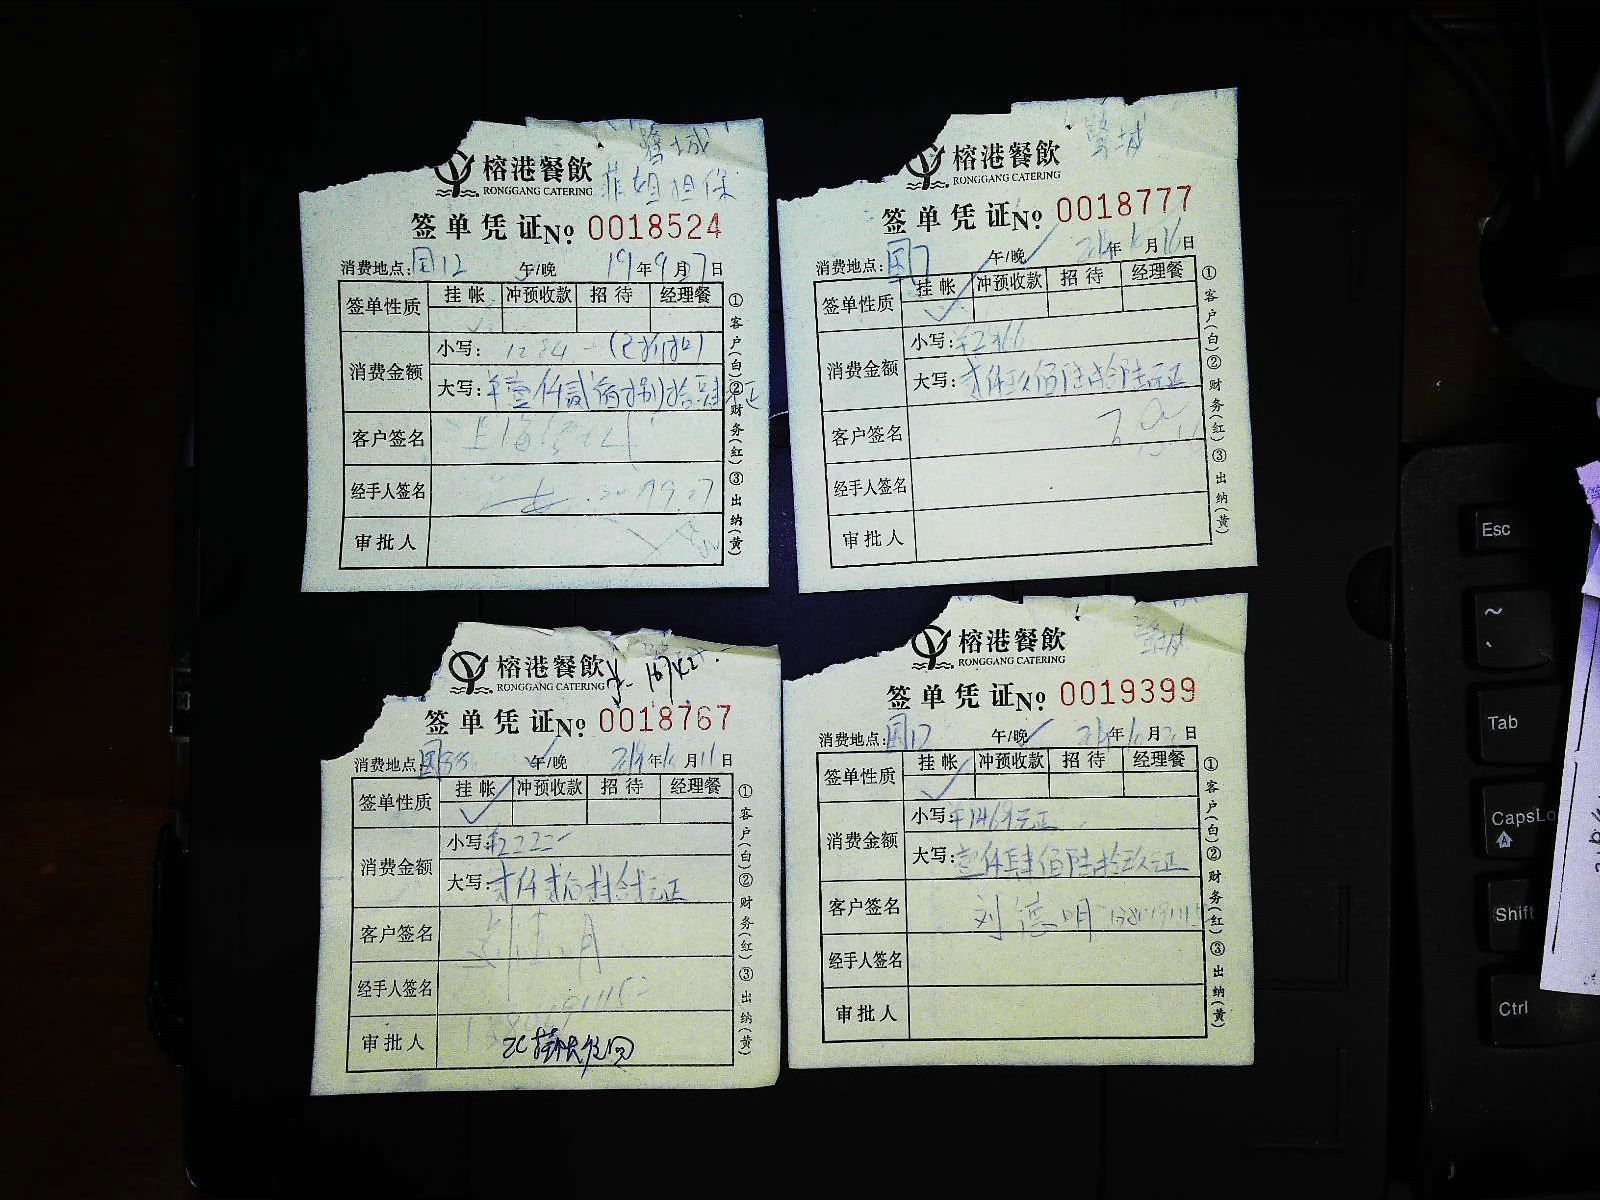 榕港餐飲
RONGGANG CATERING
菲姐担保
签单凭证 No. 0018524
消费地点: 国12 午/晚 19年9月27日
签单性质 挂帐 冲预收款 招待 经理餐
消费金额
小写: 1284 - (已折扣)
大写: 壹仟贰佰捌拾肆元正
客户签名
经手人签名
审批人
①客户(白)②财务(红)③出纳(黄)
榕港餐飲
RONGGANG CATERING
签单凭证 No. 0018777
消费地点: 国7 午/晚 年 月16日
签单性质 挂帐 冲预收款 招待 经理餐
消费金额
小写: ¥2966
大写: 贰仟玖佰陆拾陆元正
客户签名
经手人签名
审批人
①客户(白)②财务(红)③出纳(黄)
榕港餐飲
RONGGANG CATERING
签单凭证 No. 0018767
消费地点: 国55 午/晚 年 月11日
签单性质 挂帐 冲预收款 招待 经理餐
消费金额
小写: ¥2222-
大写: 贰仟贰佰贰拾贰元正
客户签名
经手人签名
审批人
①客户(白)②财务(红)③出纳(黄)
榕港餐飲
RONGGANG CATERING
签单凭证 No. 0019399
消费地点: 国12 午/晚 年 月 日
签单性质 挂帐 冲预收款 招待 经理餐
消费金额
小写: ¥1469元正
大写: 壹仟肆佰陆拾玖元正
客户签名 刘德明
经手人签名
审批人
①客户(白)②财务(红)③出纳(黄)
Esc
~
Tab
CapsLo
Shift
Ctrl